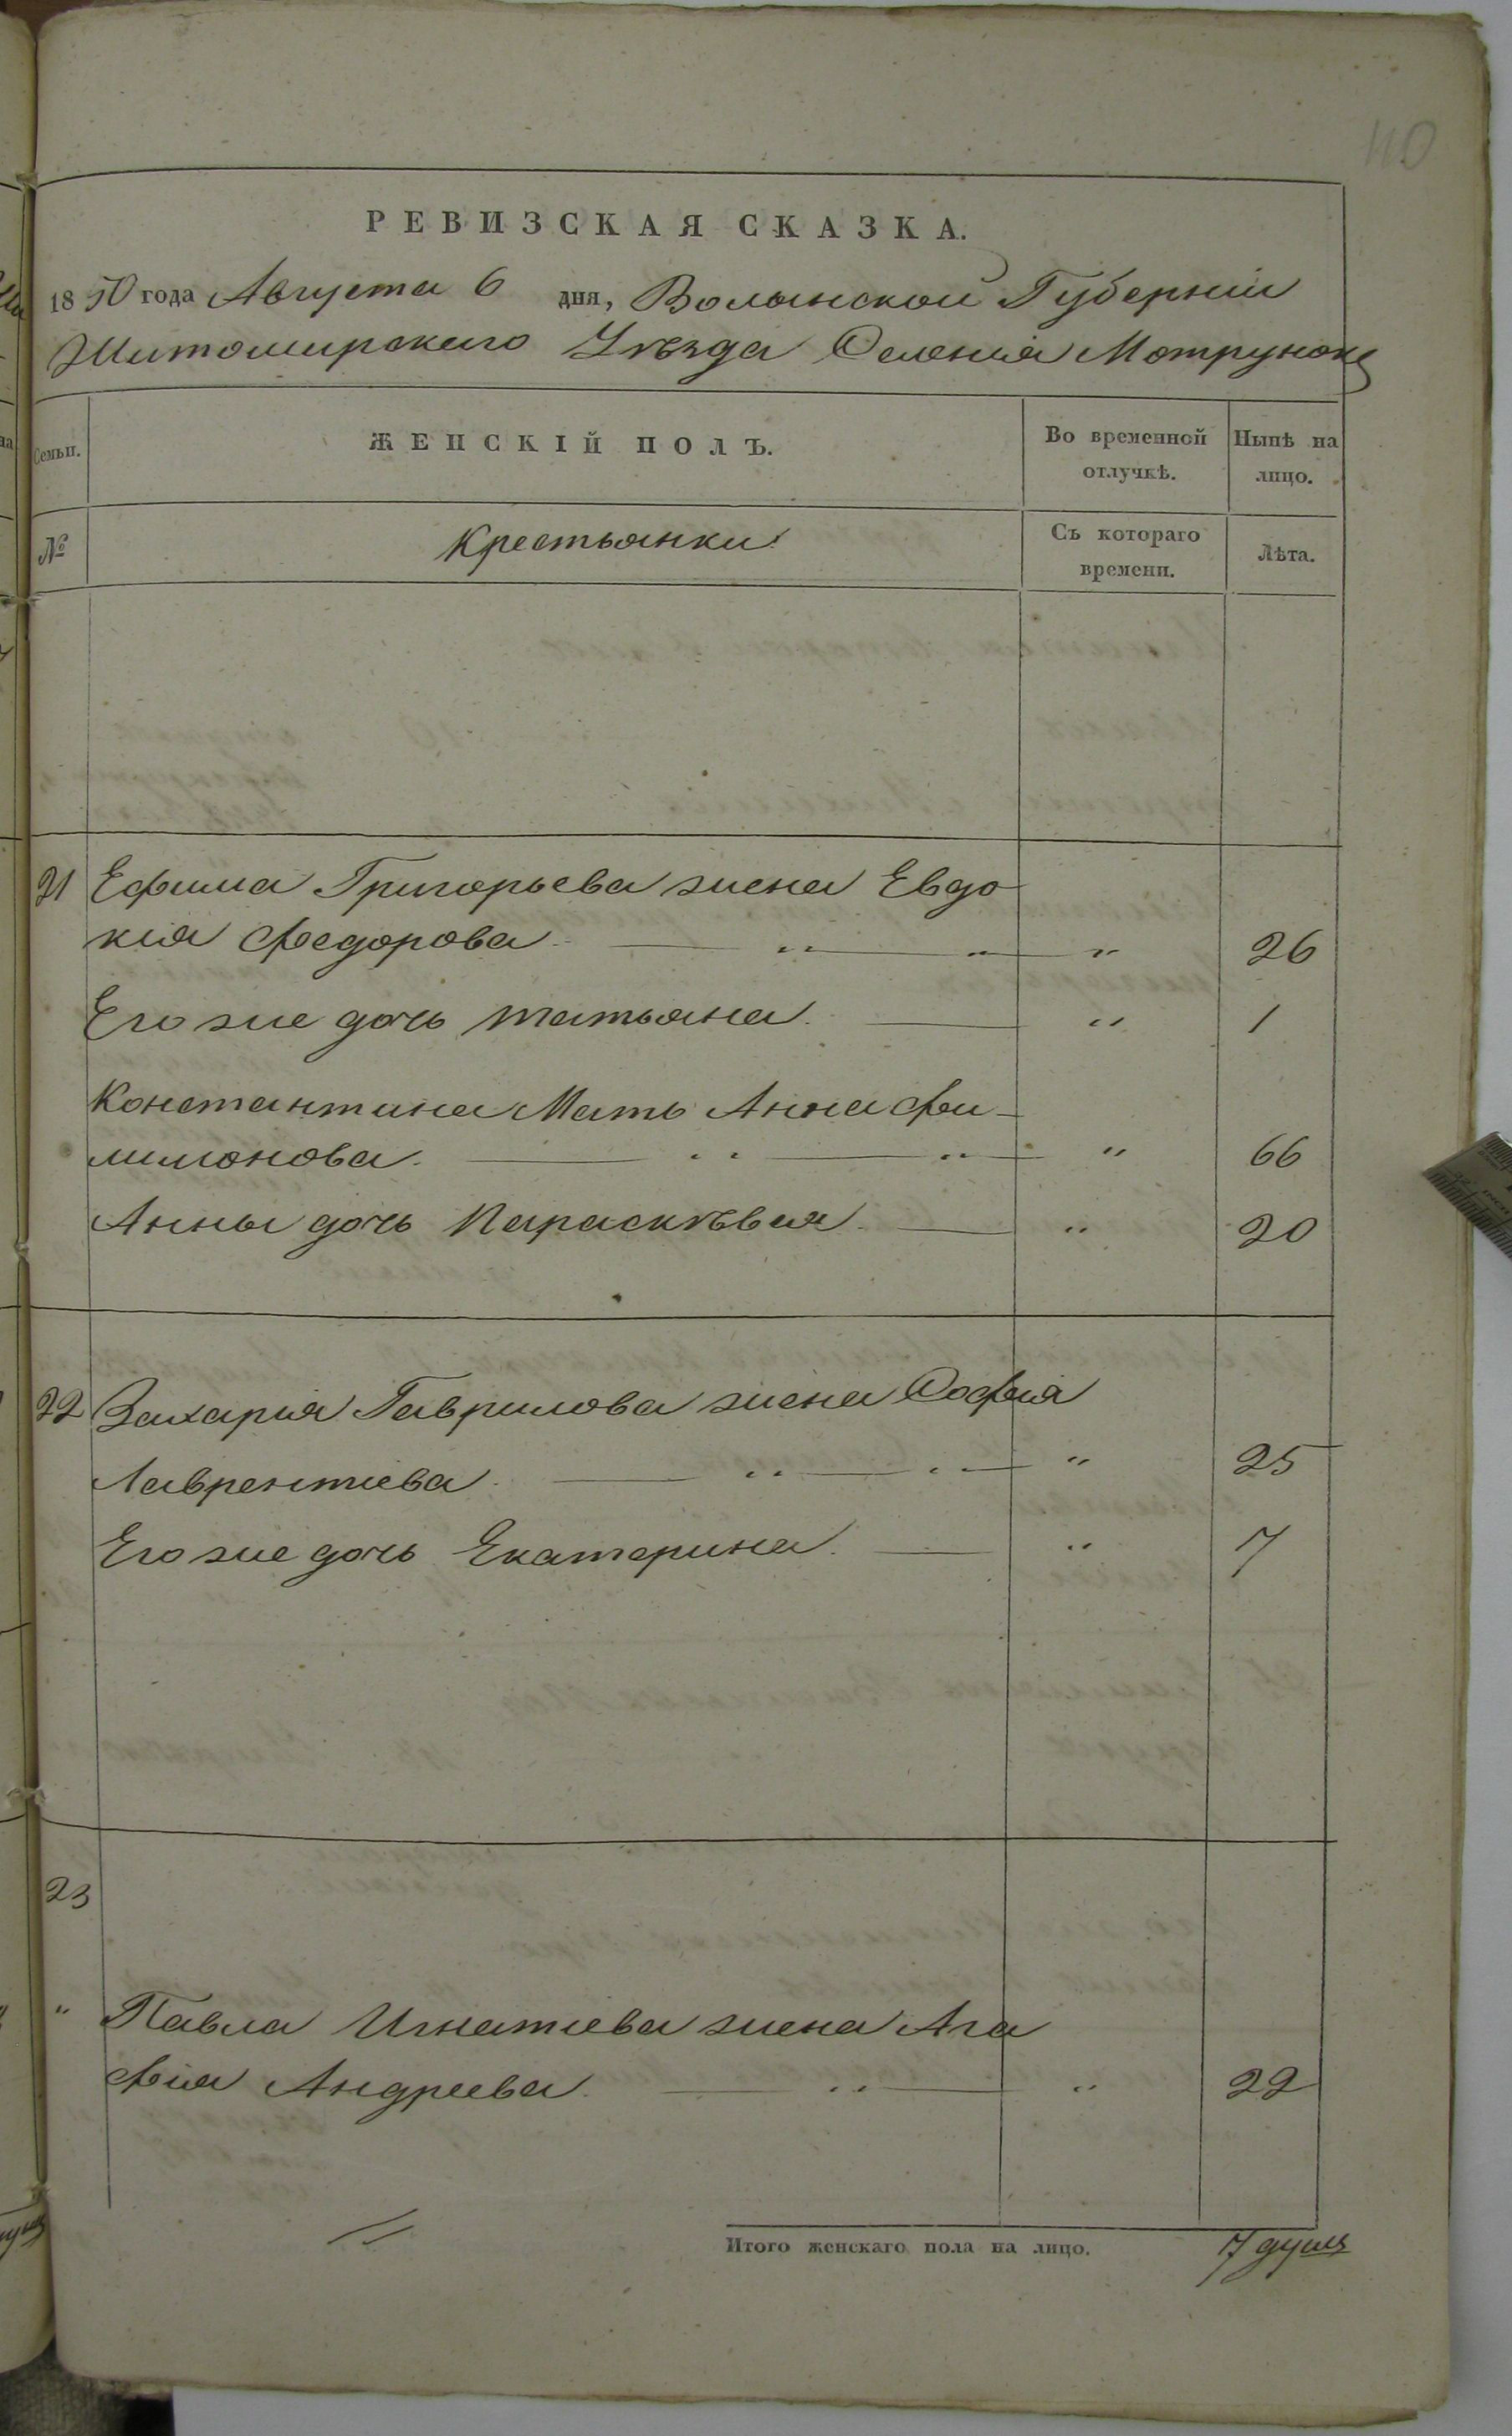 110
РЕВИЗСКАЯ СКАЗКА.
1850 года Августа 6 дня, Волынской Губерніи
Житомирскаго Уѣзда Селенія Мотрунокъ
Семьи. ЖЕНСКІЙ ПОЛЪ. Во временной отлучкѣ. Нынѣ на лицо.
№ Крестьянки Съ котораго времени. Лѣта.
21 Ефима Григорьева жена Евдо
кія Федорова. — " — " — " 26
Его же дочь Татьяна. — " 1
Константина Мать Анна Фи-
лимонова. — " — " — " 66
Анны дочь Параскѣвия. — " 20
22 Захарія Гаврилова жена Софія
Лаврентіева. — " — " — " 25
Его же дочь Екатерина. — " 7
23
" Павла Игнатіева жена Ага
фія Андреева. — " — " 22
Итого женскаго пола на лицо. 7 душъ